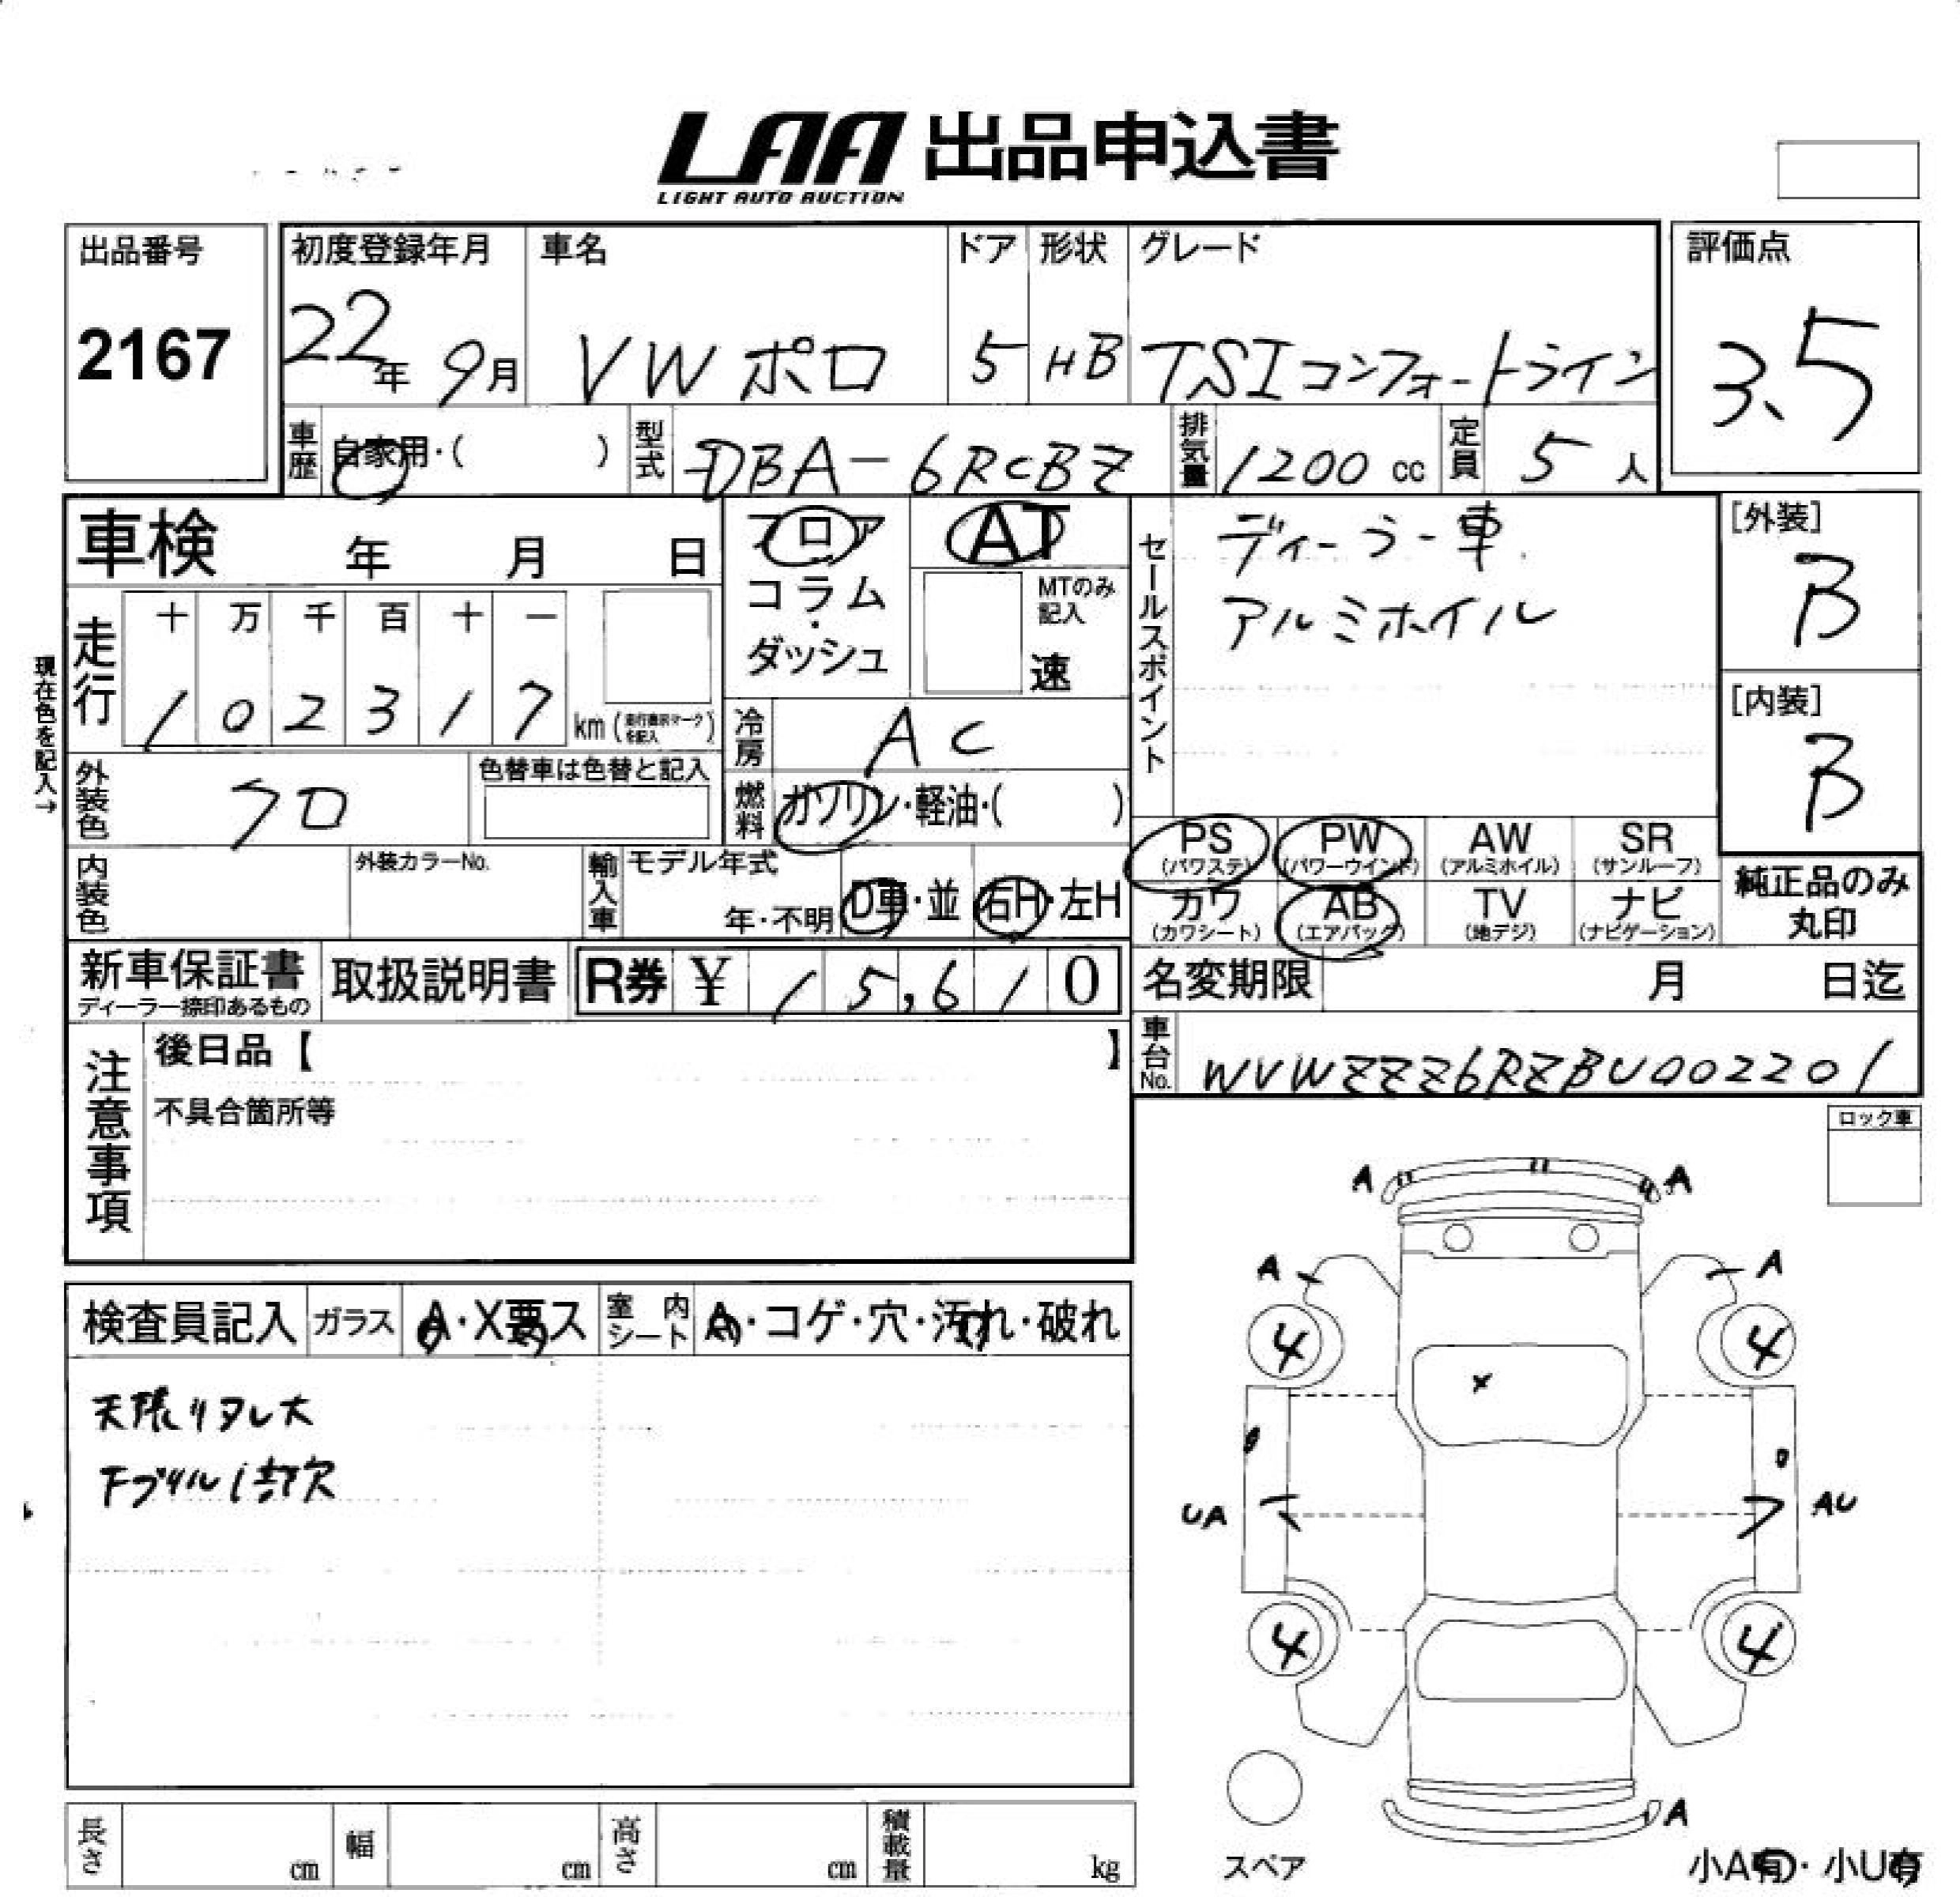 LAA 出品申込書
LIGHT AUTO AUCTION
出品番号
2167
初度登録年月
22年 9月
車名
VW ポロ
ドア
5
形状
HB
グレード
TSIコンフォートライン
評価点
3.5
車歴
自家用・( )
型式
DBA-6RCBZ
排気量
1200 cc
定員
5 人
車検 年 月 日
現在色を記入→
走行
十 万 千 百 十 一
1 0 2 3 1 7 km
フロア
コラム
・
ダッシュ
AT
MTのみ
記入
速
冷房
AC
外装色
クロ
色替車は色替と記入
燃料
ガソリン・軽油・( )
内装色
外装カラーNo.
輸入車
モデル年式
年・不明
D車・並
右H・左H
セールスポイント
ディーラー車
アルミホイル
[外装]
B
[内装]
B
PS
(パワステ)
PW
(パワーウインド)
AW
(アルミホイル)
SR
(サンルーフ)
カワ
(カワシート)
AB
(エアバック)
TV
(地デジ)
ナビ
(ナビゲーション)
純正品のみ
丸印
新車保証書
ディーラー捺印あるもの
取扱説明書
R券 ¥ 15,610
名変期限 月 日迄
車台No.
WVWZZZ6RZBU002201
注意事項
後日品【 】
不具合箇所等
ロック車
検査員記入
ガラス
A・X要ス
室内シート
A・コゲ・穴・汚れ・破れ
天張りタレ大
A
A
A
A
4
4
X
UA
AU
4
4
A
スペア
小A有・小U有
長さ cm
幅 cm
高さ cm
積載量 kg